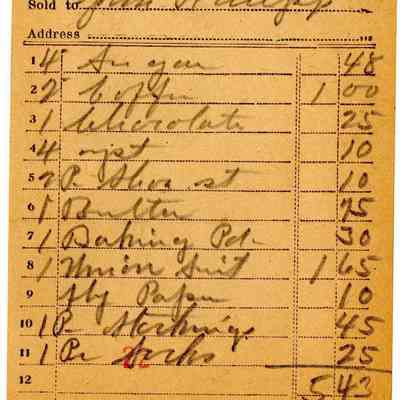 Sold to John
Address
1 4 Sugar 48
2 2 Coffee 1 00
3 1 Chocolate 25
4 4 10
5 2 P. Shoe st 10
6 1 Butter 75
7 1 Baking Pd. 30
8 1 Union Suit 1 65
9 fly Paper 10
10 1 Pr Stockings 45
11 1 Pr Socks 25
12 5 43
22